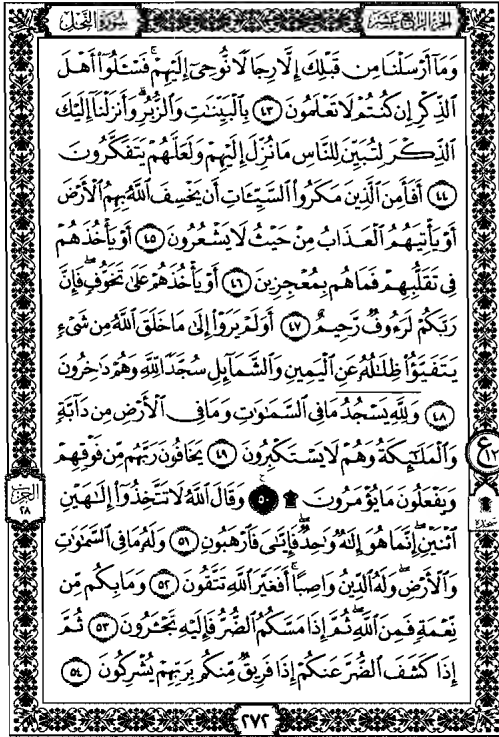 الجزء الرابع عشر
سورة النحل
وَمَآ أَرْسَلْنَا مِن قَبْلِكَ إِلَّا رِجَالًا نُّوحِىٓ إِلَيْهِمْ ۚ فَسْـَٔلُوٓا۟ أَهْلَ
ٱلذِّكْرِ إِن كُنتُمْ لَا تَعْلَمُونَ ٤٣ بِٱلْبَيِّنَـٰتِ وَٱلزُّبُرِ ۗ وَأَنزَلْنَآ إِلَيْكَ
ٱلذِّكْرَ لِتُبَيِّنَ لِلنَّاسِ مَا نُزِّلَ إِلَيْهِمْ وَلَعَلَّهُمْ يَتَفَكَّرُونَ
٤٤ أَفَأَمِنَ ٱلَّذِينَ مَكَرُوا۟ ٱلسَّيِّـَٔاتِ أَن يَخْسِفَ ٱللَّهُ بِهِمُ ٱلْأَرْضَ
أَوْ يَأْتِيَهُمُ ٱلْعَذَابُ مِنْ حَيْثُ لَا يَشْعُرُونَ ٤٥ أَوْ يَأْخُذَهُمْ
فِى تَقَلُّبِهِمْ فَمَا هُم بِمُعْجِزِينَ ٤٦ أَوْ يَأْخُذَهُمْ عَلَىٰ تَخَوُّفٍ ۖ فَإِنَّ
رَبَّكُمْ لَرَءُوفٌ رَّحِيمٌ ٤٧ أَوَلَمْ يَرَوْا۟ إِلَىٰ مَا خَلَقَ ٱللَّهُ مِن شَىْءٍ
يَتَفَيَّؤُا۟ ظِلَـٰلُهُۥ عَنِ ٱلْيَمِينِ وَٱلشَّمَآئِلِ سُجَّدًا لِّلَّهِ وَهُمْ دَٰخِرُونَ
٤٨ وَلِلَّهِ يَسْجُدُ مَا فِى ٱلسَّمَـٰوَٰتِ وَمَا فِى ٱلْأَرْضِ مِن دَآبَّةٍ
وَٱلْمَلَـٰٓئِكَةُ وَهُمْ لَا يَسْتَكْبِرُونَ ٤٩ يَخَافُونَ رَبَّهُم مِّن فَوْقِهِمْ
وَيَفْعَلُونَ مَا يُؤْمَرُونَ ۩ ٥٠ ۞ وَقَالَ ٱللَّهُ لَا تَتَّخِذُوٓا۟ إِلَـٰهَيْنِ
ٱثْنَيْنِ ۖ إِنَّمَا هُوَ إِلَـٰهٌ وَٰحِدٌ ۖ فَإِيَّـٰىَ فَٱرْهَبُونِ ٥١ وَلَهُۥ مَا فِى ٱلسَّمَـٰوَٰتِ
وَٱلْأَرْضِ وَلَهُ ٱلدِّينُ وَاصِبًا ۚ أَفَغَيْرَ ٱللَّهِ تَتَّقُونَ ٥٢ وَمَا بِكُم مِّن
نِّعْمَةٍ فَمِنَ ٱللَّهِ ۖ ثُمَّ إِذَا مَسَّكُمُ ٱلضُّرُّ فَإِلَيْهِ تَجْـَٔرُونَ ٥٣ ثُمَّ
إِذَا كَشَفَ ٱلضُّرَّ عَنكُمْ إِذَا فَرِيقٌ مِّنكُم بِرَبِّهِمْ يُشْرِكُونَ ٥٤
ع ١٢
سجدة
الحزب
٢٨
٢٧٢